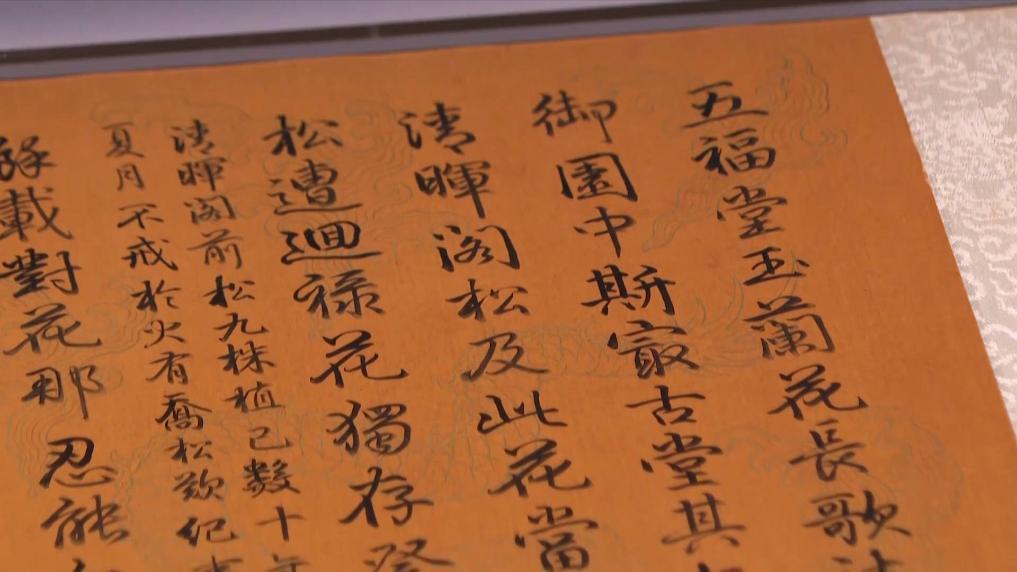 五福堂玉蘭花長歌
御園中斯㝡古堂其
清暉閣松及此花當
松遭迴祿花獨存
清暉閣前松九株植已數十年
夏月不戒於火有喬松歎紀
載對花那忍能